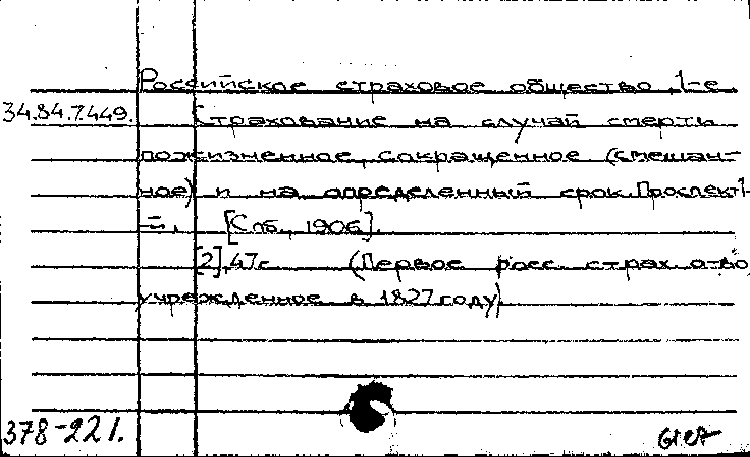 Российское страховое общество, 1-е.
34.84.7.449. Страхование на случай смерти
пожизненное, сокращенное (смешан-
ное) и на определенный срок. Проспект 1-
-й. [Спб., 1906].
[2], 47с (Первое росс. страх. о-во,
учрежденное в 1827 году).
378-221.